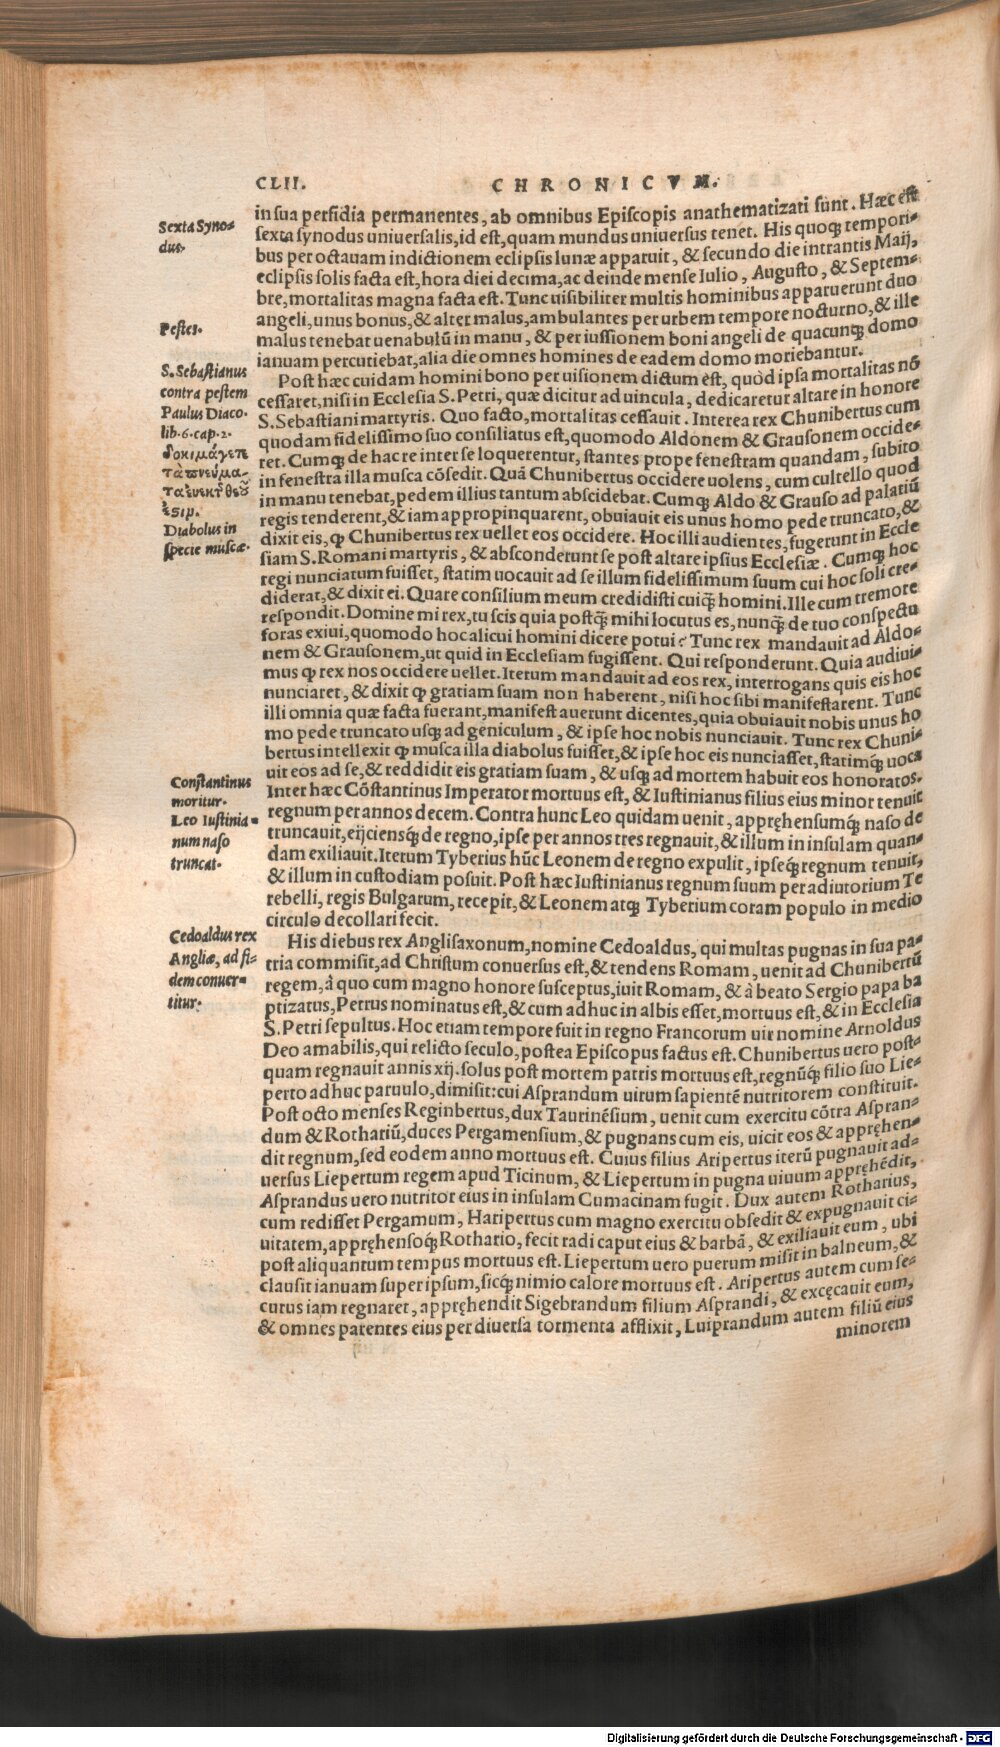 CLII. CHRONICVM.
in sua perfidia permanentes, ab omnibus Episcopis anathematizati sunt. Hæc est
sexta synodus uniuersalis, id est, quam mundus uniuersus tenet. His quoq; tempori-
bus per octauam indictionem eclipsis lunæ apparuit, & secundo die intrantis Maij,
eclipsis solis facta est, hora diei decima, ac deinde mense Iulio, Augusto, & Septem-
bre, mortalitas magna facta est. Tunc uisibiliter multis hominibus apparuerunt duo
angeli, unus bonus, & alter malus, ambulantes per urbem tempore nocturno, & ille
malus tenebat uenabulũ in manu, & per iussionem boni angeli de quacunq; domo
ianuam percutiebat, alia die omnes homines de eadem domo moriebantur.
Post hæc cuidam homini bono per uisionem dictum est, quòd ipsa mortalitas nõ
cessaret, nisi in Ecclesia S. Petri, quæ dicitur ad uincula, dedicaretur altare in honore
S. Sebastiani martyris. Quo facto, mortalitas cessauit. Interea rex Chunibertus cum
quodam fidelissimo suo consiliatus est, quomodo Aldonem & Grausonem occide-
ret. Cumq; de hac re inter se loquerentur, stantes prope fenestram quandam, subito
in fenestra illa musca cõsedit. Quã Chunibertus occidere uolens, cum cultello quod
in manu tenebat, pedem illius tantum abscidebat. Cumq; Aldo & Grauso ad palatiũ
regis tenderent, & iam appropinquarent, obuiauit eis unus homo pede truncato, &
dixit eis, ꝙ Chunibertus rex uellet eos occidere. Hoc illi audientes, fugerunt in Eccle
siam S. Romani martyris, & absconderunt se post altare ipsius Ecclesiæ. Cumq; hoc
regi nunciatum fuisset, statim uocauit ad se illum fidelissimum suum cui hoc soli cre-
diderat, & dixit ei. Quare consilium meum credidisti cuiq̃ homini. Ille cum tremore
respondit. Domine mi rex, tu scis quia postq̃ mihi locutus es, nunq̃ de tuo conspectu
foras exiui, quomodo hoc alicui homini dicere potui? Tunc rex mandauit ad Aldo-
nem & Grausonem, ut quid in Ecclesiam fugissent. Qui responderunt. Quia audiui-
mus ꝙ rex nos occidere uellet. Iterum mandauit ad eos rex, interrogans quis eis hoc
nunciaret, & dixit ꝙ gratiam suam non haberent, nisi hoc sibi manifestarent. Tunc
illi omnia quæ facta fuerant, manifestauerunt dicentes, quia obuiauit nobis unus ho
mo pede truncato usq; ad geniculum, & ipse hoc nobis nunciauit. Tunc rex Chuni-
bertus intellexit ꝙ musca illa diabolus fuisset, & ipse hoc eis nunciasset, statimq; uoca
uit eos ad se, & reddidit eis gratiam suam, & usq; ad mortem habuit eos honoratos.
Inter hæc Cõstantinus Imperator mortuus est, & Iustinianus filius eius minor tenuit
regnum per annos decem. Contra hunc Leo quidam uenit, apprȩhensumq; naso de
truncauit, eijciensq; de regno, ipse per annos tres regnauit, & illum in insulam quan-
dam exiliauit. Iterum Tyberius hũc Leonem de regno expulit, ipseq; regnum tenuit,
& illum in custodiam posuit. Post hæc Iustinianus regnum suum per adiutorium Te
rebelli, regis Bulgarum, recepit, & Leonem atq; Tyberium coram populo in medio
circulo decollari fecit.
His diebus rex Anglisaxonum, nomine Cedoaldus, qui multas pugnas in sua pa-
tria commisit, ad Christum conuersus est, & tendens Romam, uenit ad Chunibertũ
regem, à quo cum magno honore susceptus, iuit Romam, & à beato Sergio papa ba
ptizatus, Petrus nominatus est, & cum adhuc in albis esset, mortuus est, & in Ecclesia
S. Petri sepultus. Hoc etiam tempore fuit in regno Francorum uir nomine Arnoldus
Deo amabilis, qui relicto seculo, postea Episcopus factus est. Chunibertus uero post-
quam regnauit annis xij. solus post mortem patris mortuus est, regnũq; filio suo Lie-
perto adhuc paruulo, dimisit: cui Asprandum uirum sapientẽ nutritorem constituit.
Post octo menses Reginbertus, dux Taurinẽsium, uenit cum exercitu cõtra Aspran-
dum & Rothariũ, duces Pergamensium, & pugnans cum eis, uicit eos & apprȩhen-
dit regnum, sed eodem anno mortuus est. Cuius filius Aripertus iterũ pugnauit ad-
uersus Liepertum regem apud Ticinum, & Liepertum in pugna uiuum apprȩhẽdit,
Asprandus uero nutritor eius in insulam Cumacinam fugit. Dux autem Rotharius,
cum redisset Pergamum, Haripertus cum magno exercitu obsedit & expugnauit ci-
uitatem, apprȩhensoq; Rothario, fecit radi caput eius & barbã, & exiliauit eum, ubi
post aliquantum tempus mortuus est. Liepertum uero puerum misit in balneum, &
clausit ianuam super ipsum, sicq; nimio calore mortuus est. Aripertus autem cum se-
curus iam regnaret, apprȩhendit Sigebrandum filium Asprandi, & excȩcauit eum,
& omnes parentes eius per diuersa tormenta afflixit, Luiprandum autem filiũ eius
minorem
Sexta Syno-
dus.
Pestis.
S. Sebastianus
contra pestem
Paulus Diaco.
lib. 6. cap. 2.
Diabolus in
specie muscæ.
Constantinus
moritur.
Leo Iustinia-
num naso
truncat.
Cedoaldus rex
Angliæ, ad fi-
dem conuer-
titur.
Digitalisierung gefördert durch die Deutsche Forschungsgemeinschaft - DFG